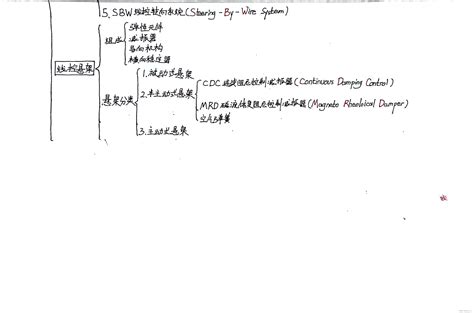 5. SBW 线控转向系统 (Steering - By - Wire System)
组成
弹性元件
减振器
导向机构
横向稳定器
线控悬架
悬架分类
1. 被动式悬架
2. 半主动式悬架
CDC 连续阻尼控制减振器 (Continuous Damping Control)
MRD 磁流体变阻尼控制减振器 (Magneto Rheological Damper)
空气弹簧
3. 主动式悬架